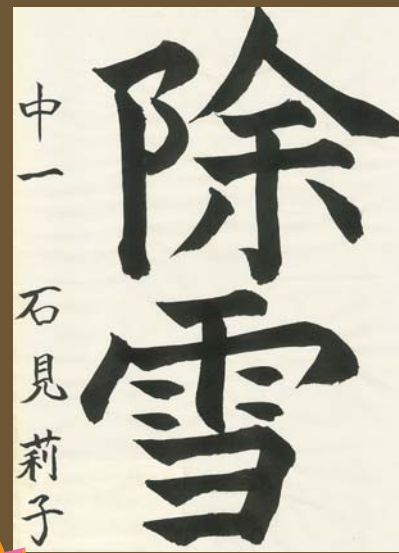 除雪
中一 石見莉子